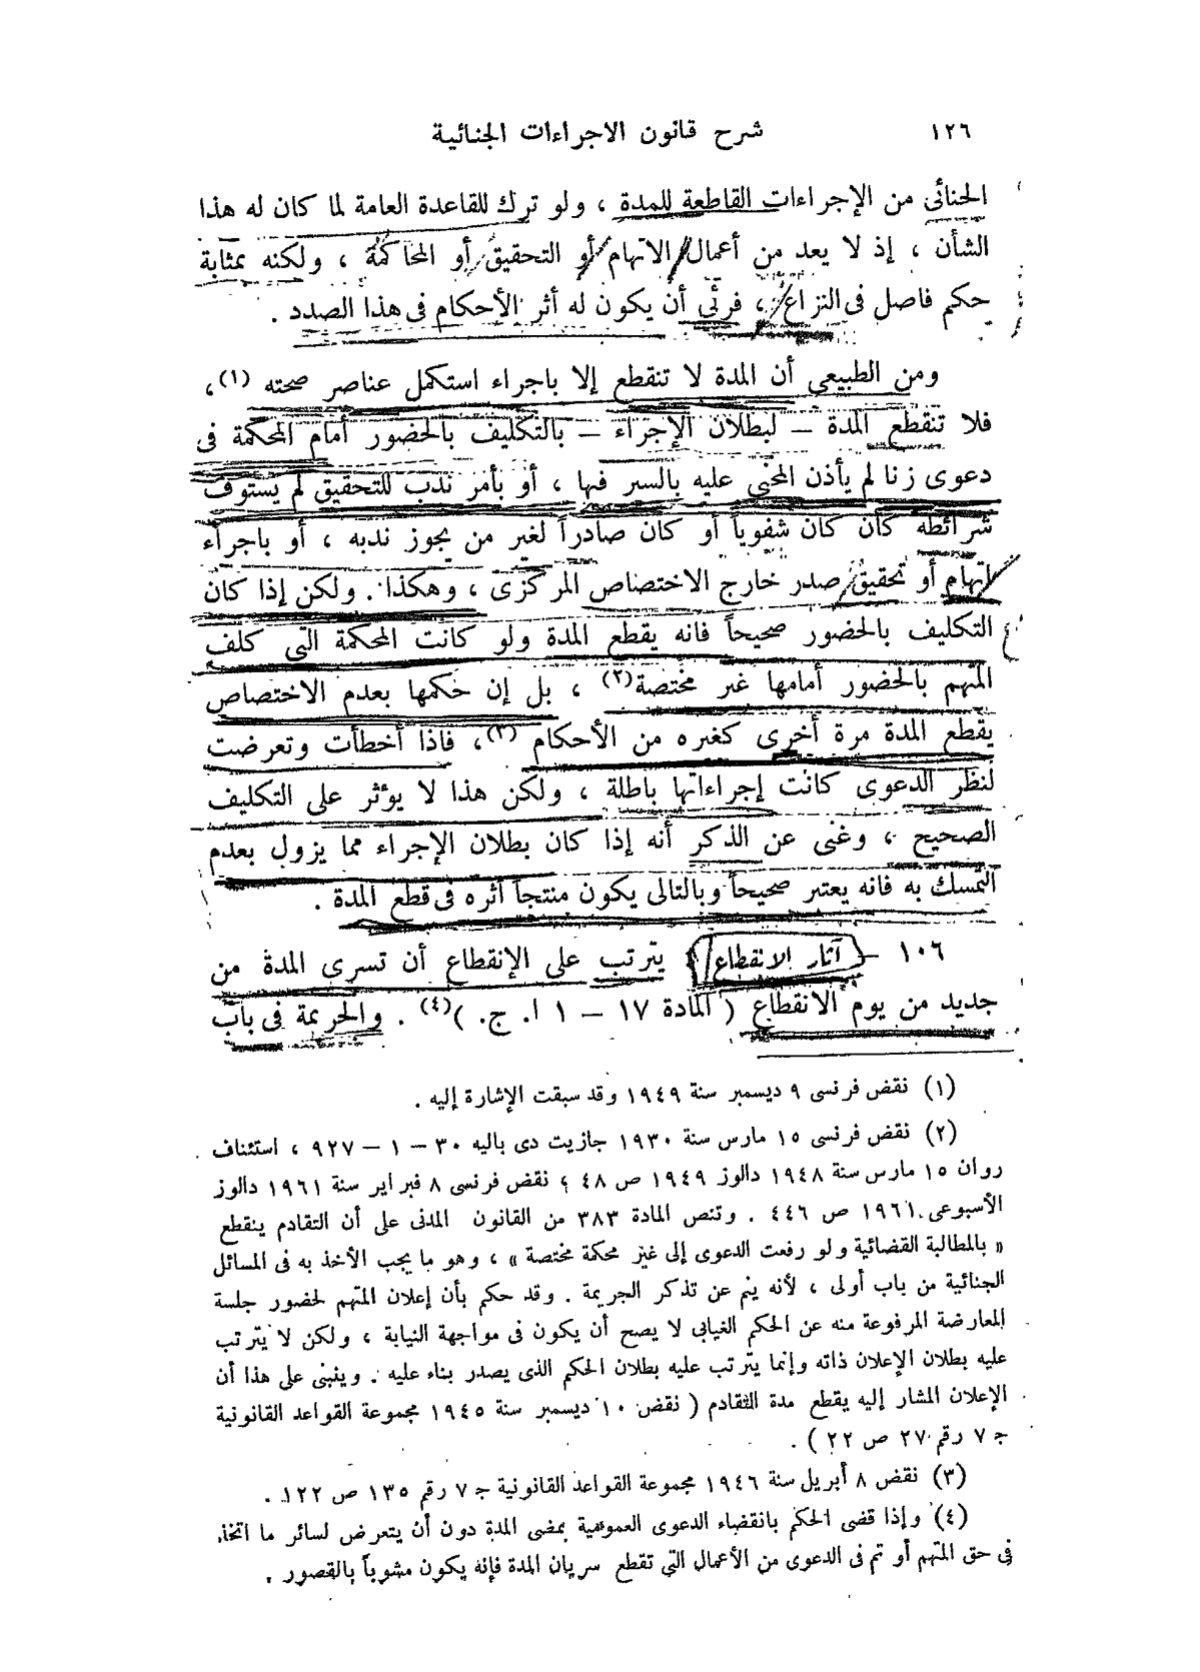 ١٢٦ شرح قانون الاجراءات الجنائية
الجنائى من الإجراءات القاطعة للمدة ، ولو ترك للقاعدة العامة لما كان له هذا
الشأن ، إذ لا يعد من أعمال الاتهام أو التحقيق أو المحاكمة ، ولكنه بمثابة
حكم فاصل فى النزاع ، فرئى أن يكون له أثر الأحكام فى هذا الصدد .
ومن الطبيعى أن المدة لا تنقطع إلا باجراء استكمل عناصر صحته (١) ،
فلا تنقطع المدة – لبطلان الإجراء – بالتكليف بالحضور أمام المحكمة فى
دعوى زنا لم يأذن المجنى عليه بالسير فيها ، أو بأمر ندب للتحقيق لم يستوف
شرائطه كأن كان شفوياً أو كان صادراً لغير من يجوز ندبه ، أو باجراء
اتهام أو تحقيق صدر خارج الاختصاص المركزى ، وهكذا . ولكن إذا كان
التكليف بالحضور صحيحاً فانه يقطع المدة ولو كانت المحكمة التى كلف
المتهم بالحضور أمامها غير مختصة (٢) ، بل إن حكمها بعدم الاختصاص
يقطع المدة مرة أخرى كغيره من الأحكام (٣) ، فاذا أخطأت وتعرضت
لنظر الدعوى كانت إجراءاتها باطلة ، ولكن هذا لا يؤثر على التكليف
الصحيح ، وغنى عن الذكر أنه إذا كان بطلان الإجراء مما يزول بعدم
التمسك به فانه يعتبر صحيحاً وبالتالى يكون منتجاً أثره فى قطع المدة .
١٠٦ – آثار الانقطاع يترتب على الإنقطاع أن تسرى المدة من
جديد من يوم الانقطاع ( المادة ١٧ – ١ ا. ج. ) (٤) . والجريمة فى باب
(١) نقض فرنسى ٩ ديسمبر سنة ١٩٤٩ وقد سبقت الإشارة إليه .
(٢) نقض فرنسى ١٥ مارس سنة ١٩٣٠ جازيت دى باليه ٣٠ – ١ – ٩٢٧ ، استئناف
روان ١٥ مارس سنة ١٩٤٨ دالوز ١٩٤٩ ص ٤٨ ؛ نقض فرنسى ٨ فبراير سنة ١٩٦١ دالوز
الأسبوعى ١٩٦١ ص ٤٤٦ . وتنص المادة ٣٨٣ من القانون المدنى على أن التقادم ينقطع
« بالمطالبة القضائية ولو رفعت الدعوى إلى غير محكمة مختصة » ، وهو ما يجب الأخذ به فى المسائل
الجنائية من باب أولى ، لأنه ينم عن تذكر الجريمة . وقد حكم بأن إعلان المتهم لحضور جلسة
المعارضة المرفوعة منه عن الحكم الغيابى لا يصح أن يكون فى مواجهة النيابة ، ولكن لا يترتب
عليه بطلان الإعلان ذاته وإنما يترتب عليه بطلان الحكم الذى يصدر بناء عليه . وينبنى على هذا أن
الإعلان المشار إليه يقطع مدة التقادم ( نقض ١٠ ديسمبر سنة ١٩٤٥ مجموعة القواعد القانونية
ج ٧ رقم ٢٧ ص ٢٢ ) .
(٣) نقض ٨ أبريل سنة ١٩٤٦ مجموعة القواعد القانونية ج ٧ رقم ١٣٥ ص ١٢٢ .
(٤) وإذا قضى الحكم بانقضاء الدعوى العمومية بمضى المدة دون أن يتعرض لسائر ما اتخذ
فى حق المتهم أو تم فى الدعوى من الأعمال التي تقطع سريان المدة فإنه يكون مشوباً بالقصور .